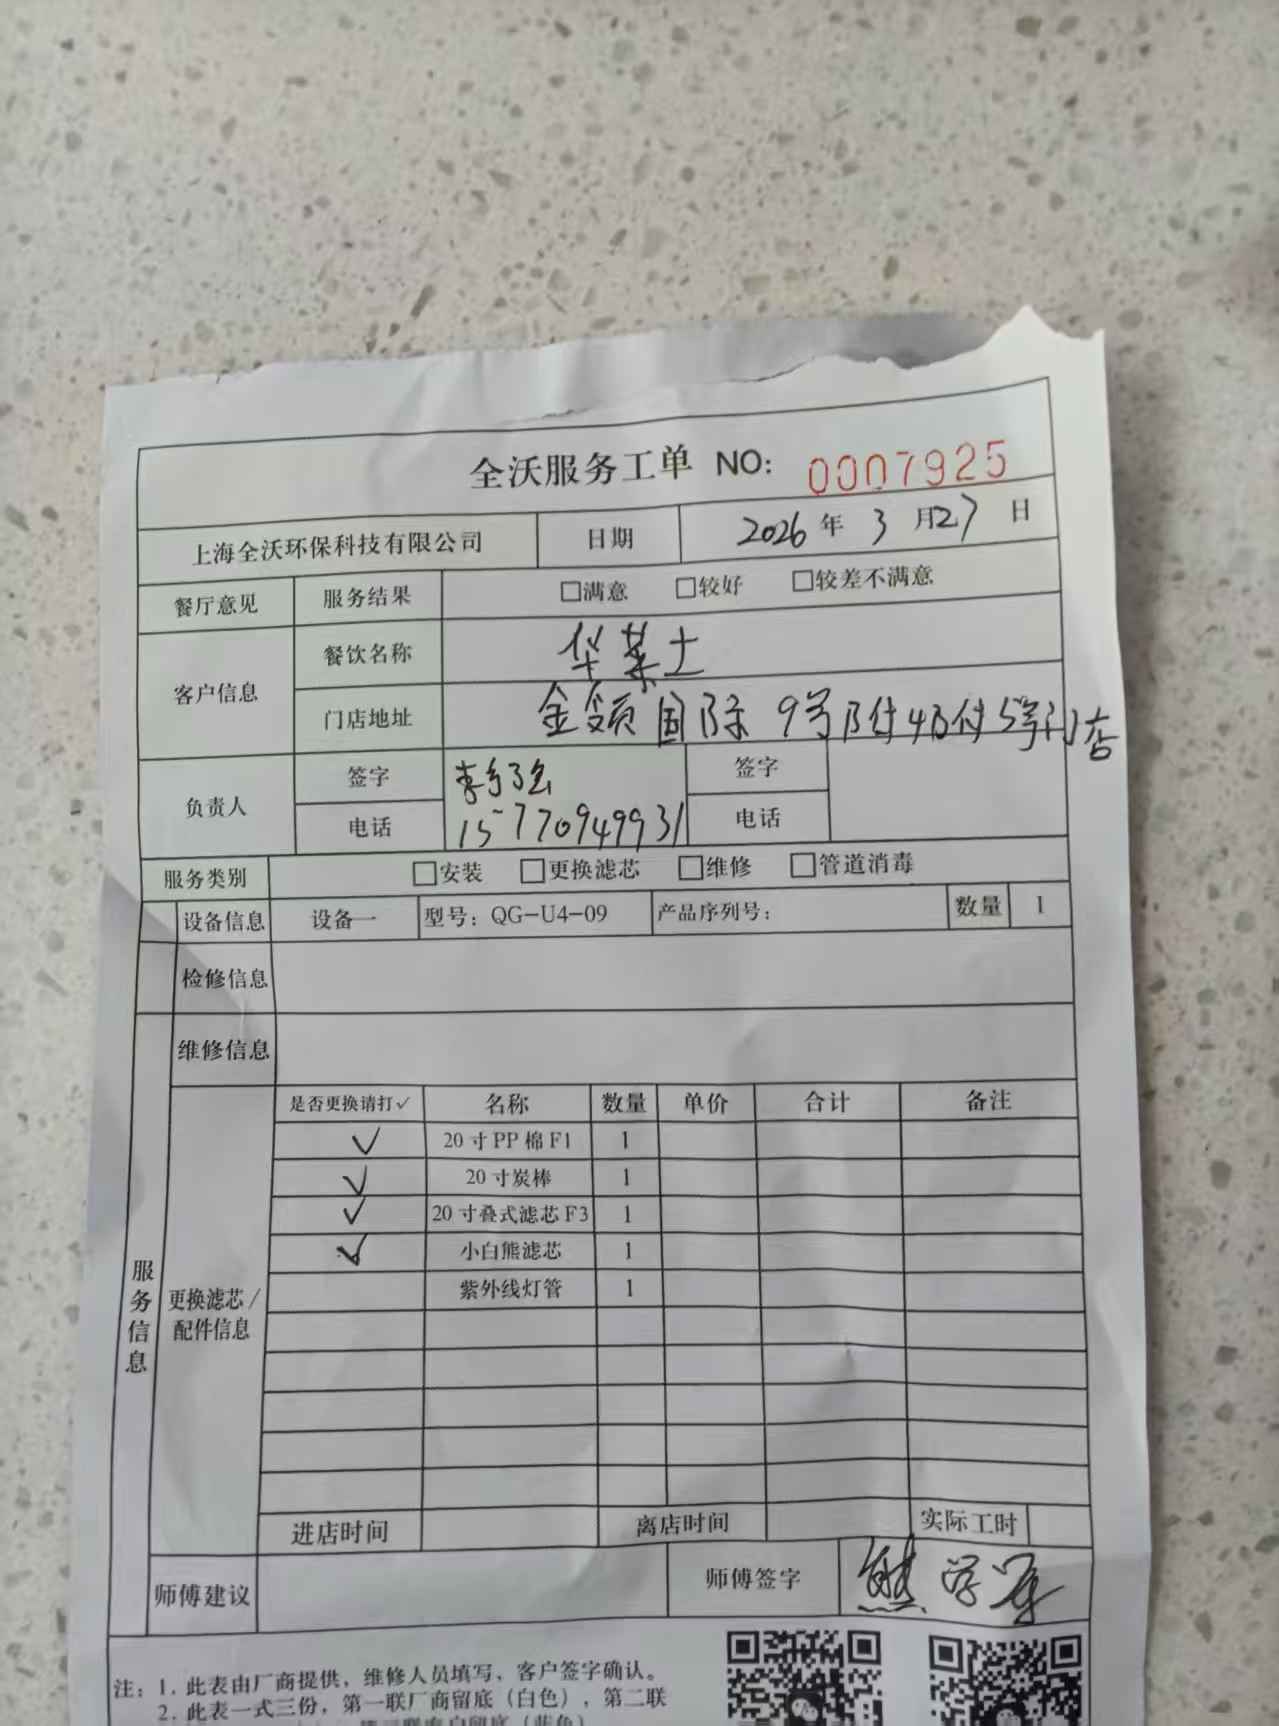 全沃服务工单 NO: 0007925
上海全沃环保科技有限公司 日期 2026 年 3 月 27 日
餐厅意见 服务结果 □满意 □较好 □较差不满意
客户信息 餐饮名称 华莱士
门店地址 金领国际 9号附4附5号门店
负责人 签字 签字
电话 15770949931 电话
服务类别 □安装 □更换滤芯 □维修 □管道消毒
设备信息 设备一 型号：QG-U4-09 产品序列号： 数量 1
检修信息
维修信息
服务信息
更换滤芯/配件信息
是否更换请打✓ 名称 数量 单价 合计 备注
✓ 20寸PP棉F1 1
✓ 20寸炭棒 1
✓ 20寸叠式滤芯F3 1
✓ 小白熊滤芯 1
紫外线灯管 1
进店时间 离店时间 实际工时
师傅建议 师傅签字 熊学军
注：1. 此表由厂商提供，维修人员填写，客户签字确认。
2. 此表一式三份，第一联厂商留底（白色），第二联